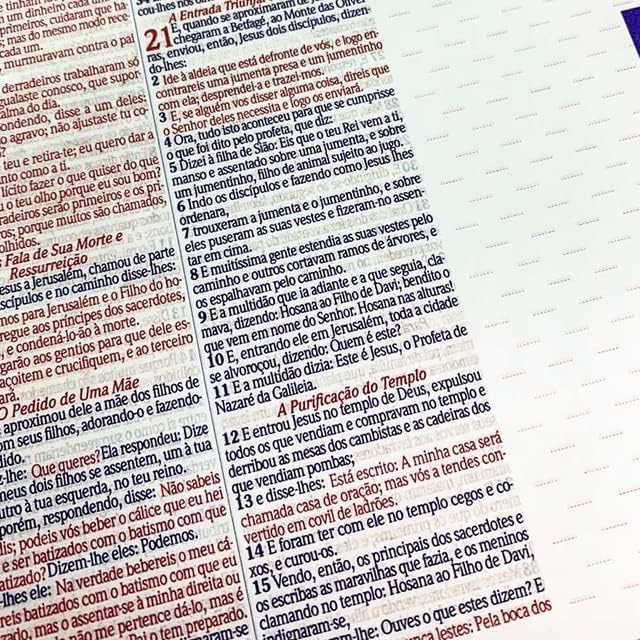 primeiros, cuidaram que ha-
mas do mesmo modo rece-
cada um.
murmuravam contra o pai
derradeiros trabalharam só
igualaste conosco, que supor-
calma do dia.
ondendo, disse a um deles:
agravo; não ajustaste tu co-
teu e retira-te; eu quero dar a
nto como a ti.
lícito fazer o que quiser do que
u o teu olho porque eu sou bom?
radeiros serão primeiros e os pri-
ros; porque muitos são chamados,
olhidos.
Fala de Sua Morte e
Ressurreição
esus a Jerusalém, chamou de parte
scípulos e no caminho disse-lhes:
mos para Jerusalém e o Filho do ho-
regue aos príncipes dos sacerdotes,
, e condená-lo-ão à morte.
garão aos gentios para que dele es-
açoitem e crucifiquem, e ao terceiro
ará.
O Pedido de Uma Mãe
aproximou dele a mãe dos filhos de
om seus filhos, adorando-o e fazendo-
dido.
z-lhe: Que queres? Ela respondeu: Dize
meus dois filhos se assentem, um à tua
utro à tua esquerda, no teu reino.
porém, respondendo, disse: Não sabeis
dis; podeis vós beber o cálice que eu hei
e ser batizados com o batismo com que
atizado? Dizem-lhe eles: Podemos.
-lhes ele: Na verdade bebereis o meu cá-
reis batizados com o batismo com que eu
ado, mas o assentar-se à minha direita ou
não me pertence dá-lo, mas é
Pai o tem preparado.
cou-lhes nos
A Entrada Triunfal
21 E, quando se aproximaram de
chegaram a Betfagé, ao Monte das Olivei-
ras, enviou, então, Jesus dois discípulos, dizen-
do-lhes:
2 Ide à aldeia que está defronte de vós, e logo en-
contrareis uma jumenta presa e um jumentinho
com ela; desprendei-a e trazei-mos.
3 E, se alguém vos disser alguma coisa, direis que
o Senhor deles necessita e logo os enviará.
4 Ora, tudo isto aconteceu para que se cumprisse
o que foi dito pelo profeta, que diz:
5 Dizei à filha de Sião: Eis que o teu Rei vem a ti,
manso e assentado sobre uma jumenta, e sobre
um jumentinho, filho de animal sujeito ao jugo.
6 Indo os discípulos e fazendo como Jesus lhes
ordenara,
7 trouxeram a jumenta e o jumentinho, e sobre
eles puseram as suas vestes e fizeram-no assen-
tar em cima.
8 E muitíssima gente estendia as suas vestes pelo
caminho e outros cortavam ramos de árvores, e
os espalhavam pelo caminho.
9 E a multidão que ia adiante e a que seguia, cla-
mava, dizendo: Hosana ao Filho de Davi; bendito o
que vem em nome do Senhor. Hosana nas alturas!
10 E, entrando ele em Jerusalém, toda a cidade
se alvoroçou, dizendo: Quem é este?
11 E a multidão dizia: Este é Jesus, o Profeta de
Nazaré da Galileia.
A Purificação do Templo
12 E entrou Jesus no templo de Deus, expulsou
todos os que vendiam e compravam no templo e
derribou as mesas dos cambistas e as cadeiras dos
que vendiam pombas;
13 e disse-lhes: Está escrito: A minha casa será
chamada casa de oração; mas vós a tendes con-
vertido em covil de ladrões.
14 E foram ter com ele no templo cegos e co-
xos, e curou-os.
15 Vendo, então, os principais dos sacerdotes e
os escribas as maravilhas que fazia, e os meninos
clamando no templo: Hosana ao Filho de Davi,
indignaram-se,
-lhe: Ouves o que estes dizem? E
lestes: Pela boca dos